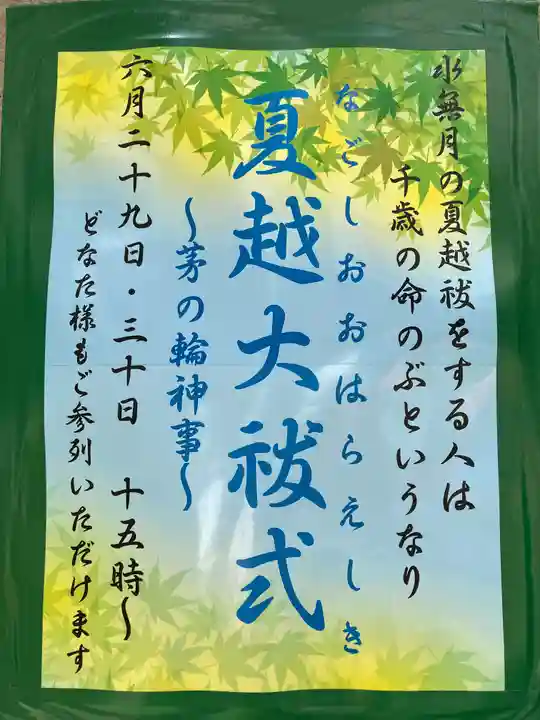 水無月の夏越祓をする人は
千歳の命のぶというなり
なごしおおはらえしき
夏越大祓式
～茅の輪神事～
六月二十九日・三十日 十五時～
どなた様もご参列いただけます